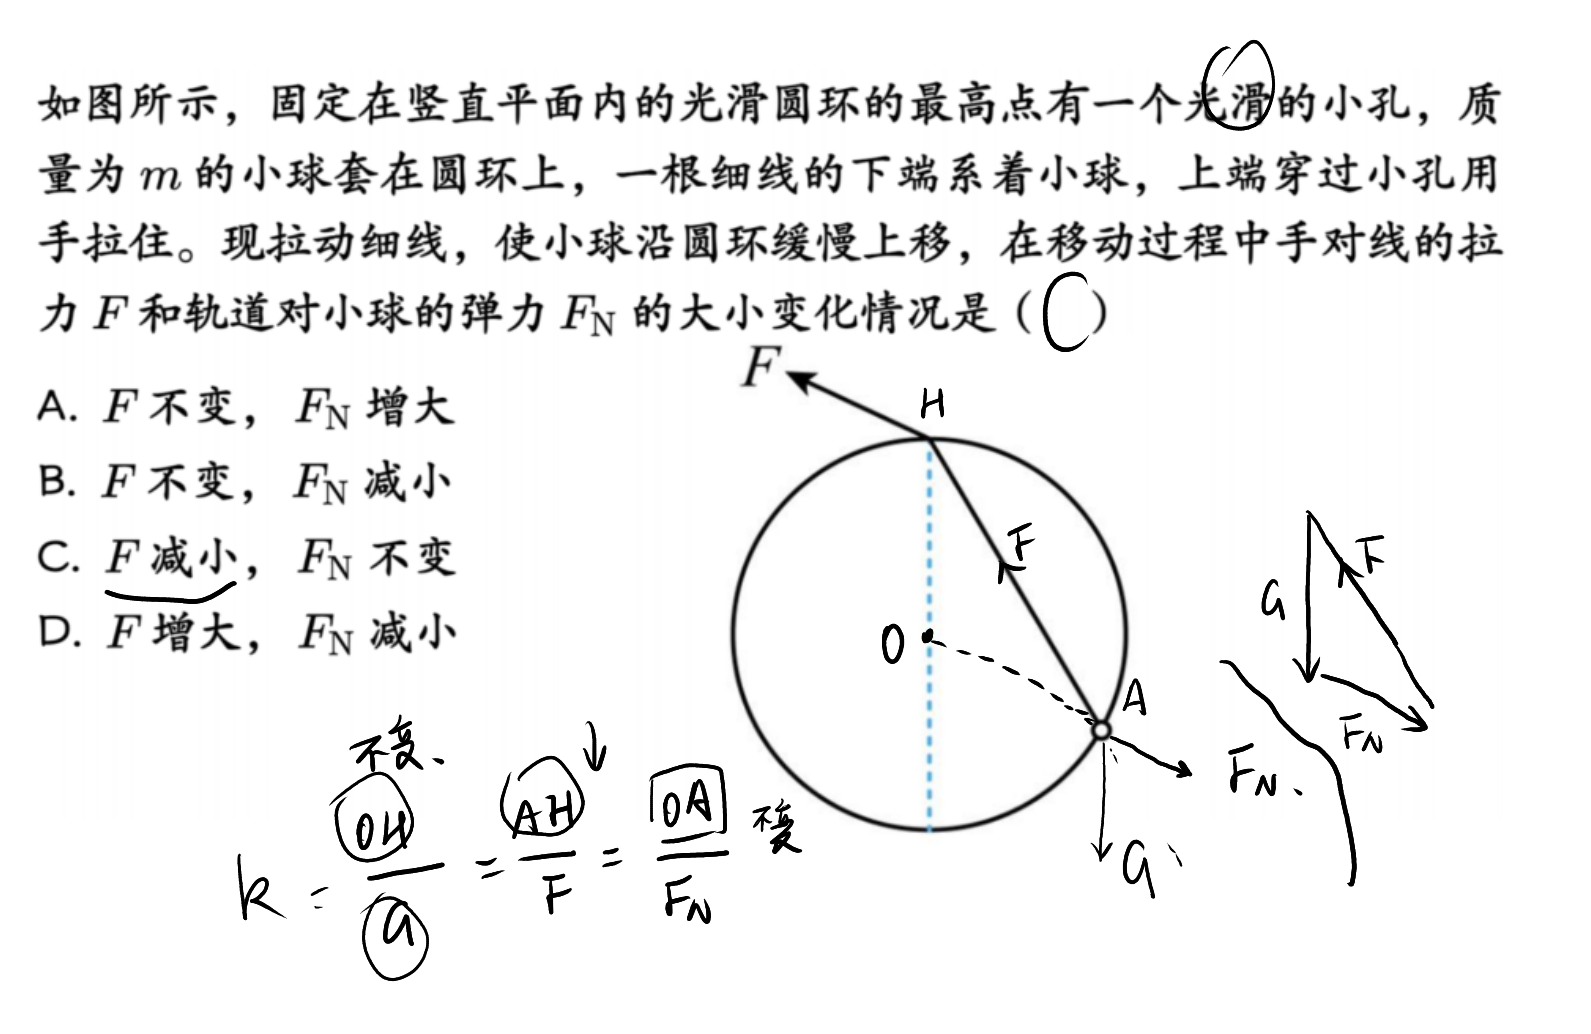 如图所示，固定在竖直平面内的光滑圆环的最高点有一个光滑的小孔，质
量为 m 的小球套在圆环上，一根细线的下端系着小球，上端穿过小孔用
手拉住。现拉动细线，使小球沿圆环缓慢上移，在移动过程中手对线的拉
力 F 和轨道对小球的弹力 F_N 的大小变化情况是（C）
A. F 不变，F_N 增大
B. F 不变，F_N 减小
C. F 减小，F_N 不变
D. F 增大，F_N 减小
F
H
F
O
A
F_N
G
G
F
F_N
不变
k = OH/G = AH/F = OA/F_N 不变